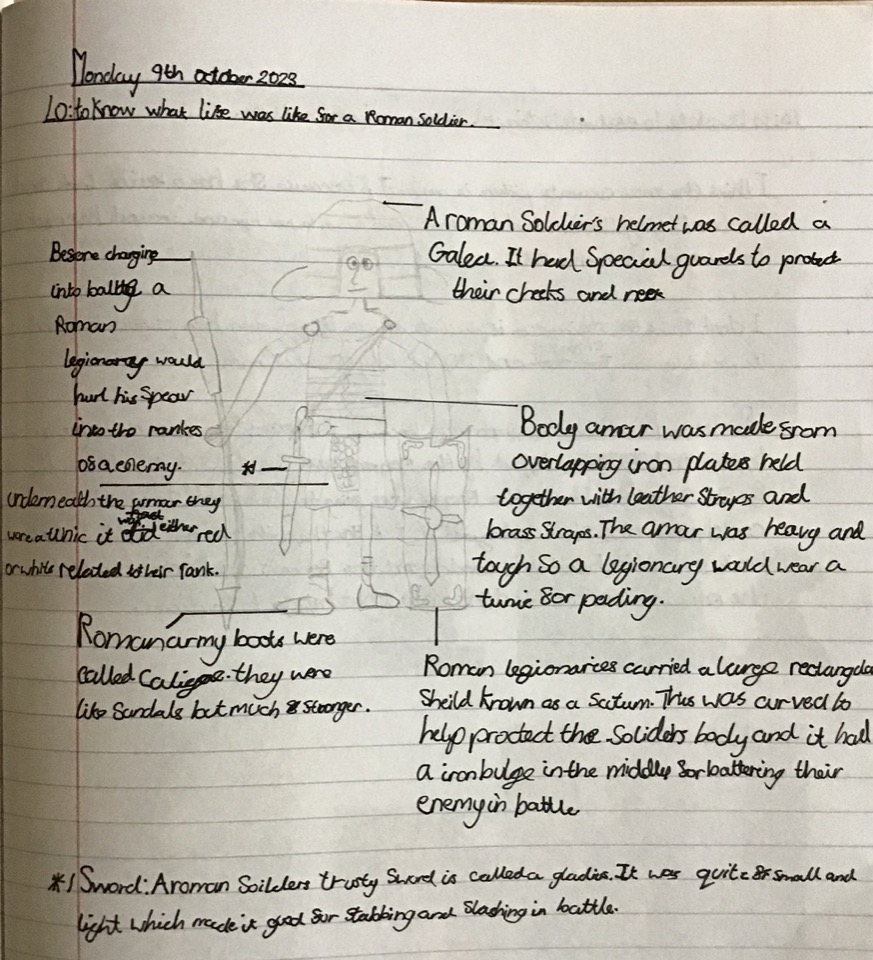 Monday 9th October 2023
LO: to know what like was like for a Roman Soldier.
A roman Soldier's helmet was called a
Galea. It had Special guards to protect
their cheeks and neek
Before charging
into battle a
Roman
legionary would
hurl his Spear
into the rankes
of a enemy.
*1
underneath the armar they
were a tunic it was either red
or white releated to their rank.
Body amour was made from
overlapping iron plates held
together with leather Straps and
brass Straps. The amar was heavy and
tough So a legionary would wear a
tunic for pading.
Roman army boots were
called Caligae. they were
like Sandals but much Stronger.
Roman legionaries carried a large rectangula
Sheild known as a Scutum. This was curved to
help protect the Soliders body and it had
a iron bulge in the middly for battering their
enemy in battle
*1 Sword: A roman Soilders trusty Sword is called a gladis. It was quite small and
light which made it good for Stabbing and Slashing in battle.